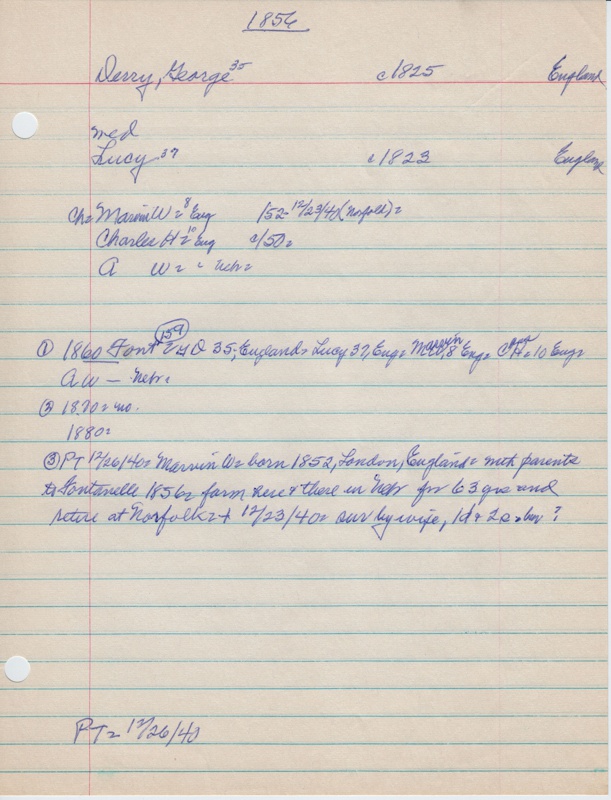 1856
Derry, George 35 c1825 England
med
Lucy 37 c1823 England
Ch= Marvin W= 8 Eng 152- 12/23/40 (Norfolk)=
Charles H= 10 Eng c/50=
A W= " Nebr=
① 1860 Font 159 35; England= Lucy 37, Eng= Marvin W, 8 Eng= H= 10 Eng=
A W — Nebr=
② 1870= no.
1880=
③ PT 12/26/40= Marvin W= born 1852, London, England= with parents
to Fontanelle 1856= farm here & there in Nebr for 63 yrs and
retire at Norfolk= + 12/23/40= sur by wife, 1d & 2s= bur ?
PT= 12/26/40